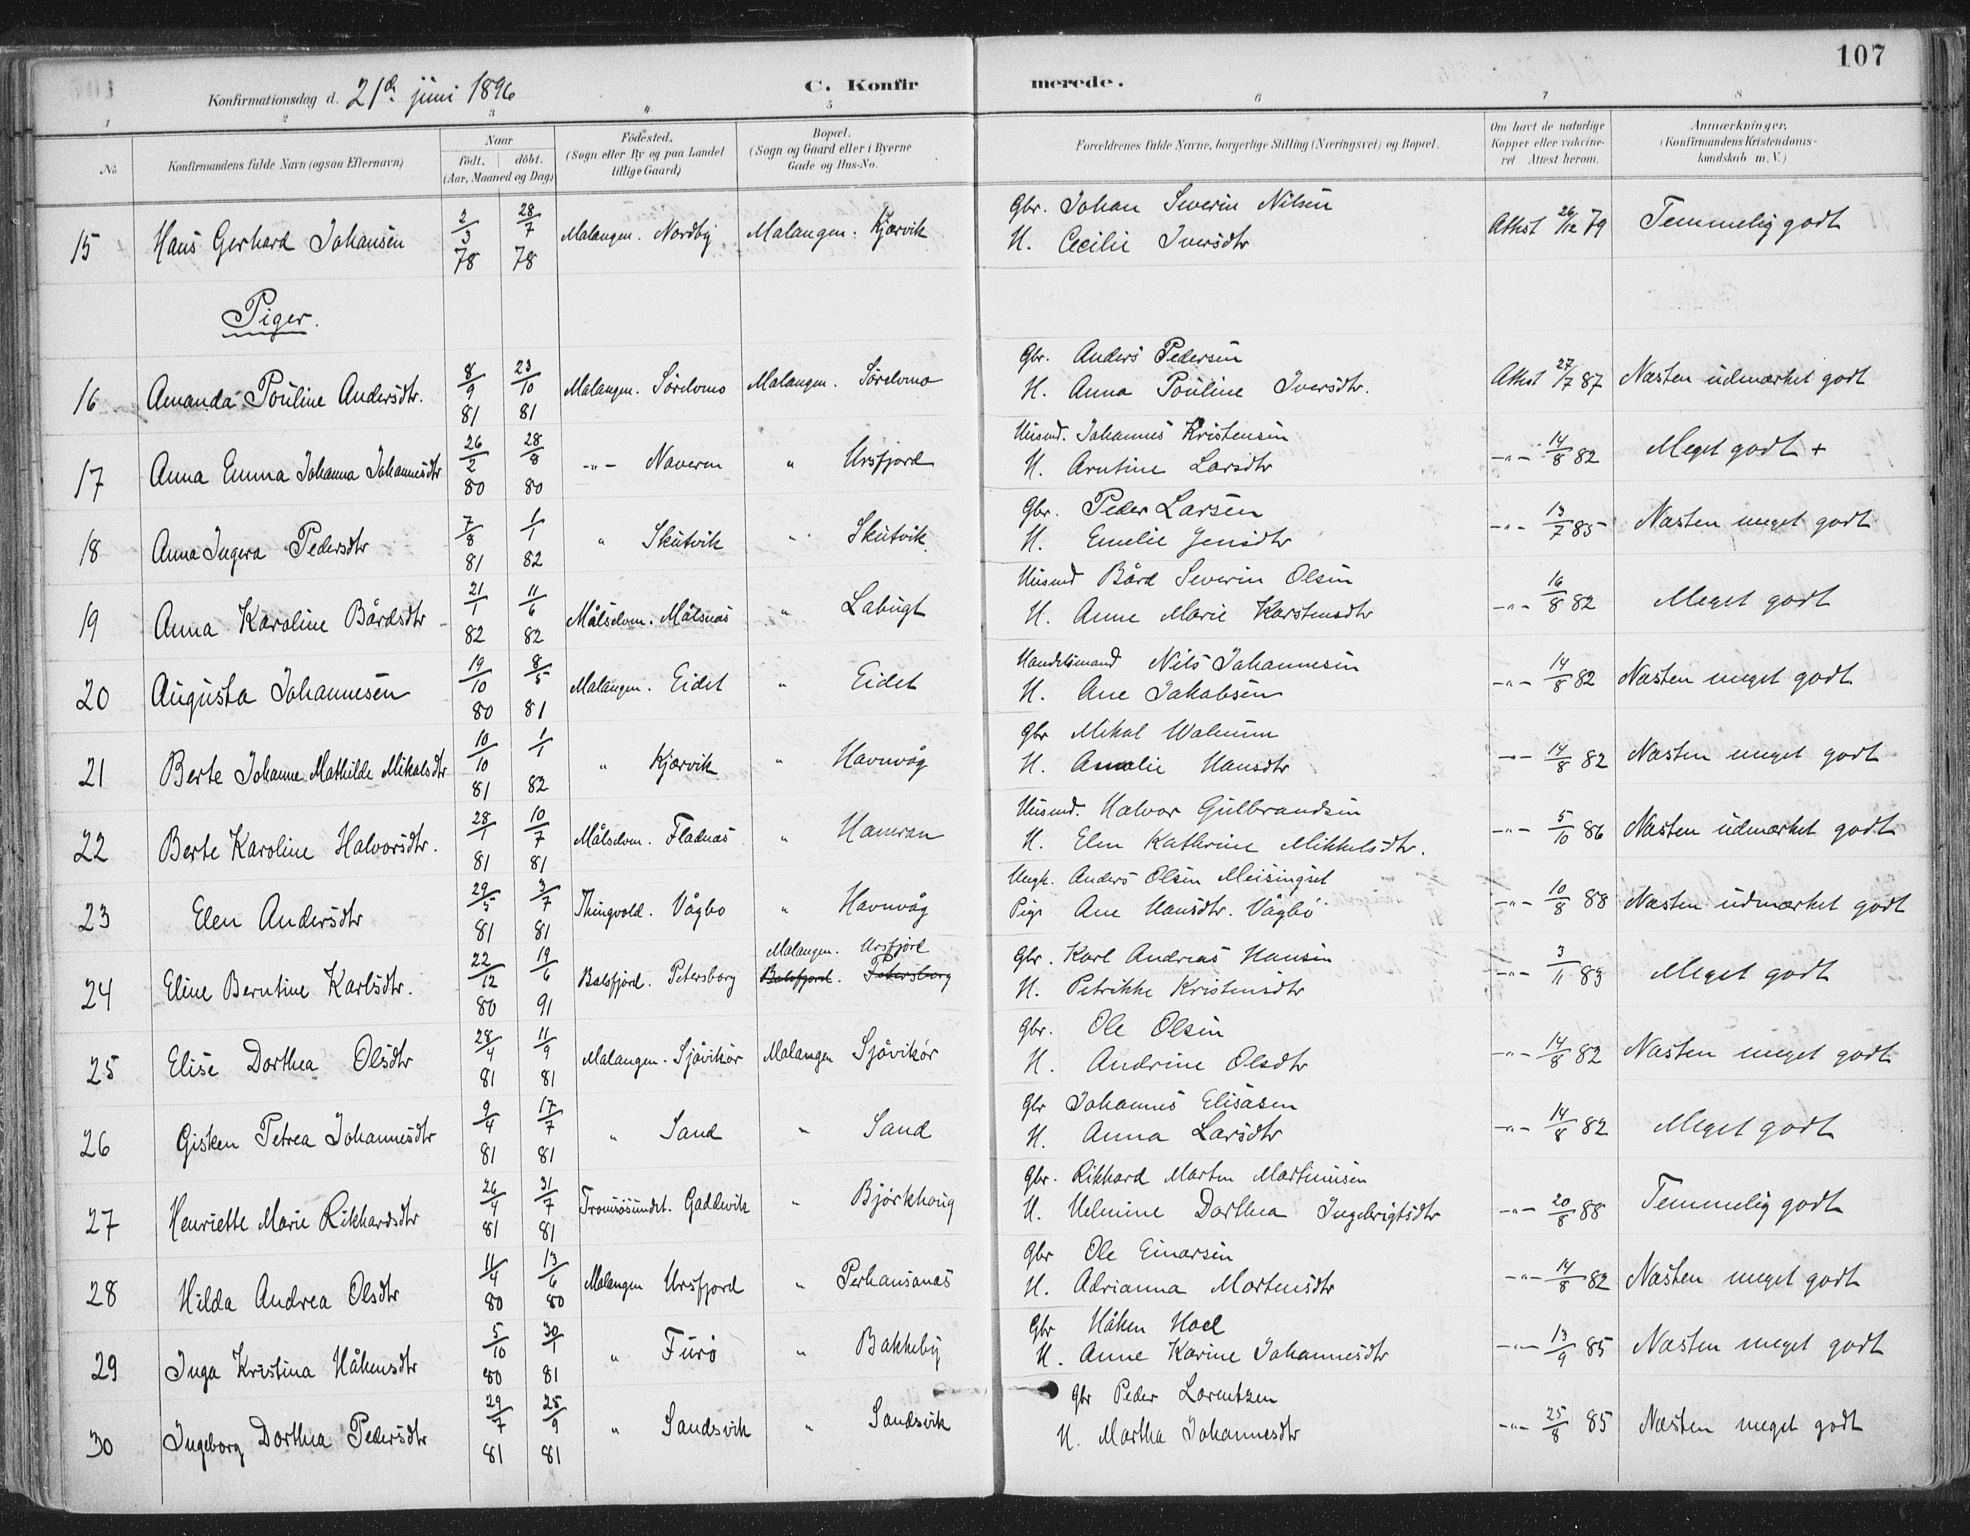 107
Konfirmationsdag d. 21de juni 1896 C. Konfirmerede.
1 2 3 4 5 6 7 8
No. Konfirmandens fulde Navn (ogsaa Efternavn) Naar födt. döbt. (Aar, Maaned og Dag) Födested. (Sogn eller By og paa Landet tillige Gaard) Bopæl. (Sogn og Gaard eller i Byerne Gade og Hus-No. Forældrenes fulde Navne, borgerlige Stilling (Næringsvei) og Bopæl. Om havt de naturlige Kopper eller vakcineret Attest herom. Anmærkninger, (Konfirmandens Kristendomskundskab m. V.)
15 Hans Gerhard Johansen 2/3 78 28/7 78 Malangen. Nordby Malangen. Kjærvik Gbr. Johan Severin Nilsen
H. Cecilie Iversdtr Attest 26/12 79 Temmelig godt
Piger.
16 Amanda Pouline Andersdtr. 8/9 81 23/10 81 Malangen. Sörelvmo Malangen. Sörelvmo Gbr. Anders Pedersen
H. Anna Pouline Iversdtr. Attest 27/7 87 Næsten udmærket godt
17 Anna Emma Johanna Johannesdtr 26/2 80 28/8 80 -"- Naveren " Ursfjord Husmd. Johannes Kristensen
H. Arntine Larsdtr -"- 14/8 82 Meget godt +
18 Anna Ingera Pedersdtr 7/8 81 1/1 82 " Skutvik " Skutvik Gbr. Peder Larsen
H. Emelie Jensdtr -"- 13/7 85 Næsten meget godt
19 Anna Karoline Bårdsdtr 21/1 82 11/6 82 Målselven. Målsnæs " Labugt Husmd Bård Severin Olsen
H. Anne Marie Karstensdtr -"- 16/8 82 Meget godt
20 Augusta Johannesen 19/10 80 8/5 81 Malangen. Eidet " Eidet Handelsmand Nils Johannesen
H. Ane Jakobsen -"- 14/8 82 Næsten meget godt
21 Berte Johanne Mathilde Mikalsdtr 10/10 81 1/1 82 " Kjærvik " Havnvåg Gbr Mikal Walnum
H. Amalie Hansdtr -"- 14/8 82 Næsten meget godt
22 Berte Karoline Halvorsdtr. 28/1 81 10/7 81 Målselven. Fladnæs " Hamran Husmd. Halvor Gulbrandsen
H. Elen Kathrine Mikkelsdtr. -"- 5/10 86 Næsten udmærket godt
23 Elen Andersdtr 29/5 81 3/7 81 Thingvold. Vågbo " Havnvåg Ungk. Anders Olsen Meisingset
Pige Ane Hansdtr. Vågbö -"- 10/8 88 Næsten udmærket godt
24 Eline Berntine Karlsdtr. 22/12 80 19/6 91 Balsfjord. Petersborg Malangen. Ursfjord
Balsfjord. Petersborg Gbr. Karl Andreas Hansen
H. Petrikke Kristensdtr -"- 3/11 83 Meget godt
25 Elise Dorthea Olsdtr 28/4 81 11/9 81 Malangen. Sjövikör Malangen Sjövikör Gbr. Ole Olsen
H. Andrine Olsdtr -"- 14/8 82 Næsten meget godt
26 Gisken Petrea Johannesdtr 9/4 81 17/7 81 " Sand " Sand Gbr Johannes Elisæsen
H. Anna Larsdtr -"- 14/8 82 Meget godt
27 Henriette Marie Rikhardsdtr 26/4 81 31/7 81 Tromsösundet. Gaddevik " Björkhoug Gbr. Rikhard Morten Martinusen
H. Helmine Dorthea Ingebrigtsdtr -"- 20/8 88 Temmelig godt
28 Hilda Andrea Olsdtr 11/4 80 13/6 80 Malangen Ursfjord " Perhansanæs Gbr Ole Einarsen
H. Adrianna Mortensdtr -"- 14/8 82 Næsten meget godt
29 Inga Kristina Håkensdtr 5/10 80 30/1 81 " Furö " Bakkeby Gbr Håken Hoel
H. Anne Karine Johannesdtr -"- 13/9 85 Næsten meget godt
30 Ingeborg Dorthea Pedersdtr 29/7 81 25/9 81 " Sandsvik " Sandsvik Gbr Peder Lorentzen
H. Martha Johannesdtr -"- 25/8 85 Næsten meget godt